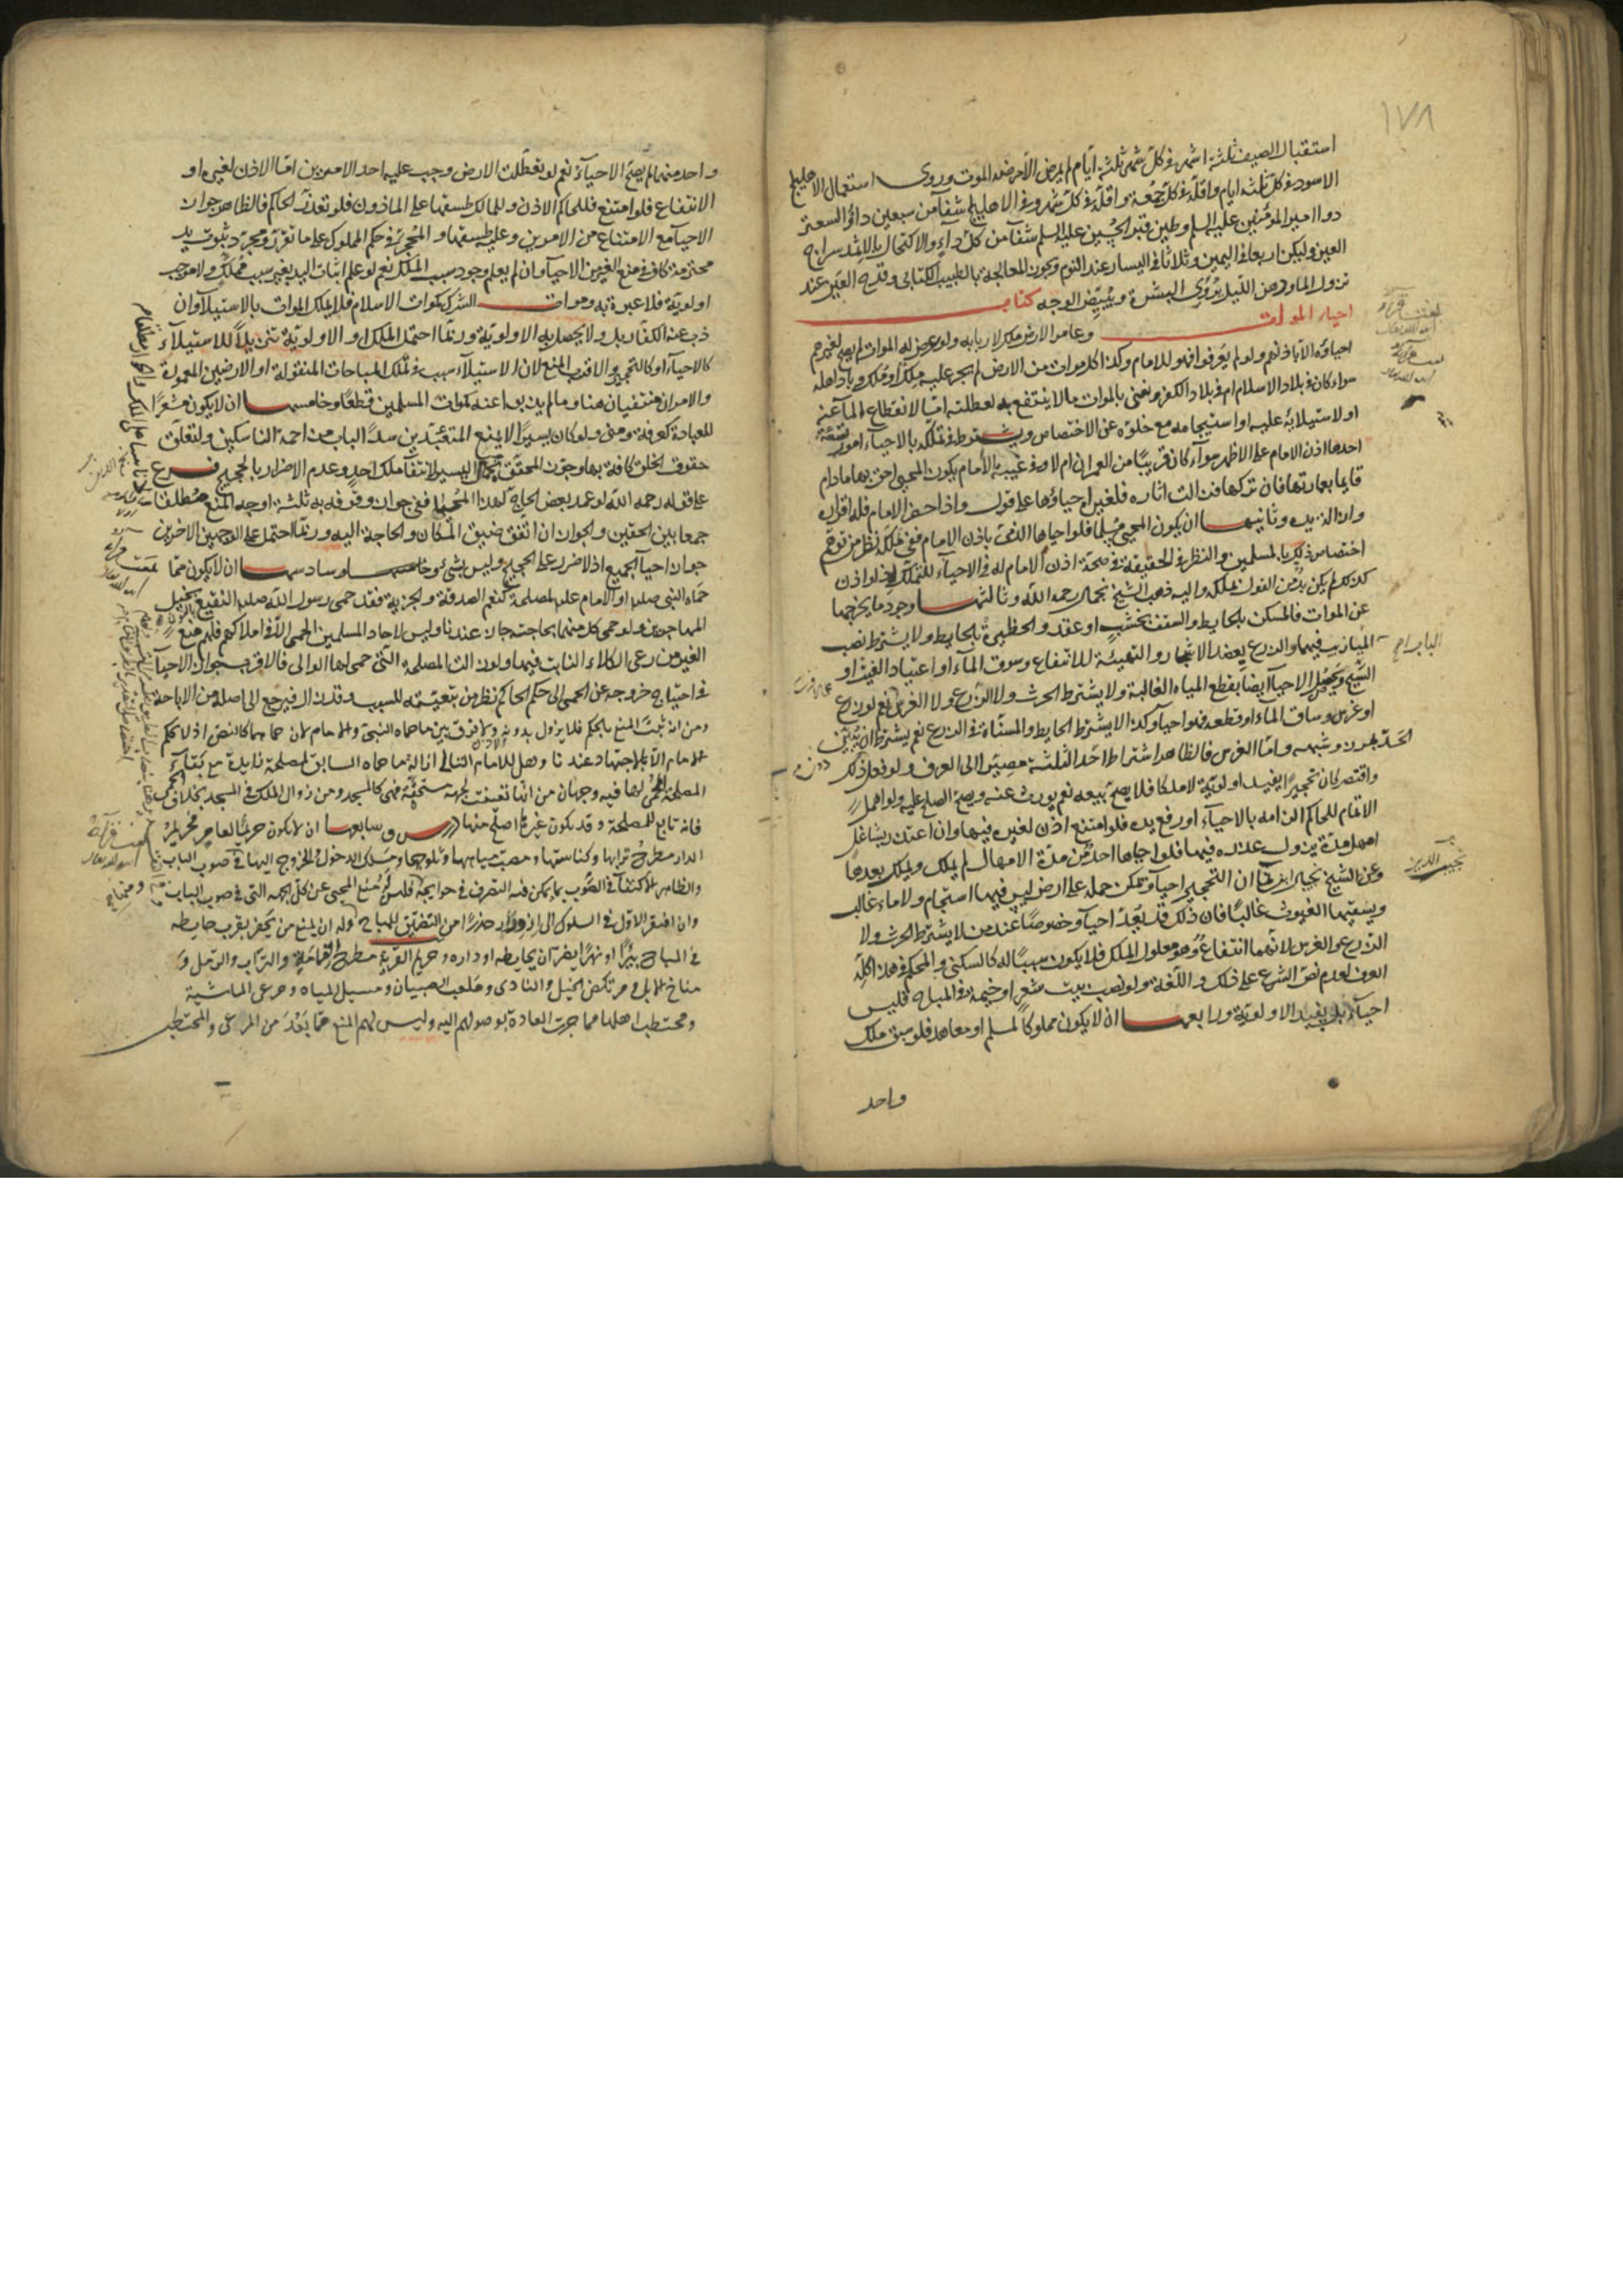 ١٧٨
استقبال الصيف ثلثة اشهر فى كل شهر ثلثة ايام لم يمرض الا مرض الموت وروى استعمال الاهليلج
الاسود فى كل ثلثة ايام واقله فى كل جمعة واقله فى كل شهر وفى الاهليلج شفآ من سبعين دآء والسعتر
دوآ امير المؤمنين عليه السلم وطين قبر الحسين عليه السلم شفا من كل دآء والاكتحال بالاثمد سراج
العين وليكن اربعا فى اليمين وثلاثا فى اليسار عند النوم ويجوز المعالجة بالطبيب الكتابى وقدح العين عند
نزول المآء ودهن الليل يروى البشرة ويبيض الوجه كتاب
احياء الموات وعامر الارض ملك لاربابه ولو عرض له الموات لم يصح لغيرهم
احياؤه الا باذنهم ولو لم يعرفوا فهو للامام وكذا كل موات من الارض لم يجر عليه ملك او ملك وباد اهله
سواء كان فى بلاد الاسلام ام فى بلاد الكفر ونعنى بالموات ما لا ينتفع به لعطلته اما لانقطاع المآء عنه
او لاستيلائه عليه او استيجامه مع خلوه عن الاختصاص ويشترط فى تملكه بالاحيآء امور تسعة
احدها اذن الامام على الاظهر سوآء كان قريبا من العمران ام لا وفى غيبة الامام يكون المحيى احق بها مادام
قايما بعمارتها فان تركها فزالت اثاره فلغيره احياؤها على قول واذا حضر الامام فله اقراره
وازالة يده وثانيها ان يكون المحيى مسلما فلو احياها الذمى باذن الامام ففى ملكه نظر من توهم
اختصاص ذلك بالمسلمين والنظر فى الحقيقة فى صحة اذن الامام له فى الاحيآء للتملك اذ لو اذن
كذلك لم يكن بد من القول بملكه واليه ذهب الشيخ نجم الدين رحمه الله وثالثها وجود ما يخرجها
عن الموات فالمسكن بالحايط والسقف بخشب او عقد والحظيرة بالحايط ولا يشترط نصب
الباب فيهما والزرع بعضد الاشجار والتهيئة للانتفاع وسوق المآء او اعتياد الغيث او
السيح ويحصل الاحيآء ايضا بقطع المياه الغالبة ولا يشترط الحرث ولا الزرع ولا الغرس نعم لو زرع
او غرس وساق الماء او قطعه فهو احيآء وكذا لا يشترط الحايط والمسناة فى الزرع نعم يشترط ان يبين
الحد بمرز وشبهه واما الغرس فالظاهر اشتراط احد الثلثة مصيرا الى العرف ولو فعل دون ذلك
واقتصر كان تحجيرا يفيد اولوية لا ملكا فلا يصح بيعه نعم يورث عنه ويصح الصلح عليه ولو اهمل
الاتمام فللحاكم الزامه بالاحيآء او رفع يده فلو امتنع اذن لغيره فيها وان اعتذر بشاغل
امهل مدة يزول عذره فيها فلو احياها احد فى مدة الامهال لم يملك ويملك بعدها
وعن الشيخ نجيب الدين ان التحجير احيآء وتمكن حمله على ارض ليس فيها استجام ولا ماء غالب
ويسقيها الغيوث غالبا فان ذلك قد يعد احيآء وخصوصا عند من لا يشترط الحرث ولا
الزرع والغرس لانهما انتفاع وهو معلول الملك فلا يكون سببا له كالسكنى والمحكم فى هذا كله
العرف لعدم نص الشرع على ذلك واللغة ولو نصب بيت شعر او خيمة فى المباح فليس
احيآء بل يفيد الاولوية ورابعها ان لا يكون مملوكا لمسلم او معاهد فلو سبق ملك
واحد
واحد منهما لم يصح الاحيآء نعم لو تعطلت الارض وجب عليه احد الامرين اما الاذن لغيره او
الانتفاع فلو امتنع فللحاكم الاذن وللمالك طسقها على الماذون فلو تعذر الحاكم فالظاهر جواز
الاحيآء مع الامتناع من الامرين وعليه طسقها والمحجر فى حكم المملوك على ما تقرر ومجرد ثبوت يد
محترمة كاف فى منع الغير من الاحيآء وان لم يعلم وجود سبب الملك نعم لو علم اثبات اليد بغير سبب مملك ولا موجب
اولوية فلا عبرة به وموات الشرك كموات الاسلام فلا يملك الموات بالاستيلآء وان
ذب عنه الكفار بل ولا يحصل به الاولوية وربما احتمل الملك او الاولوية تنزيلا للاستيلآء
كالاحيآء او كالتحجير والاقرب المنع لان الاستيلآء سبب فى تملك المباحات المنقولة او الارضين المعمورة
والامران منتفيان هنا وما لم يذبوا عنه كموات المسلمين قطعا وخامسها ان لا يكون مشعرا
للعبادة كعرفة ومنى ولو كان يسيرا لا يمنع المتعبدين سدا لباب مزاحمة الناسكين ولتعلق
حقوق الخلق كافة بها وجوز المحقق نجم الدين اليسير لانتفآء ملك احد وعدم الاضرار بالحجيج فرع
على قوله رحمه الله لو عمد بعض الحاج لهذا المحيا ففى جواز وقوفه به ثلثة اوجه المنع مطلقا
جمعا بين الحقين والجواز ان اتفق ضيق المكان والحاجة اليه وربما احتمل على الوجهين الاخيرين
جواز احيآء الجميع اذ لا ضرر على الحجيج وليس بشىء وسادسها ان لا يكون مما
حماه النبى صلى او الامام على المصلحة كنعم الصدقة والجزية فقد حمى رسول الله صلى النقيع لخيل
المهاجرين ولو حمى كل منهما لحاجته جاز عندنا وليس لاحاد المسلمين الحمى الا فى املاكهم فلهم منع
الغير من رعى الكلاء النابت فيها ولو زالت المصلحة التى حمى لها الوالى فالاقرب جواز الاحيآء
فى احتياج خروجه عن الحمى الى حكم الحاكم نظر من تبعيته للسبب وقد زال فيرجع الى اصله من الاباحة
ومن انه ثبت المنع بالحكم فلا يزول بدونه ولا فرق بين ما حماه النبى والامام لان حماهما كالنص اذ لا يحكم
الامام الا بالاجتهاد عندنا وهل للامام التالى ازالة ما حماه السابق لمصلحة زايدة مع بقآء
المصلحة المحمى لها فيه وجهان من انها تعينت لجهة مستحقة فهى كالمسجد ومن زوال الملك فى المسجد بخلاف الحمى
فانه تابع للمصلحة وقد تكون غيرها اصلح منها درس وسابعها ان لا يكون حريما لعامر فحريم
الدار مطرح ترابها وكناستها ومصب مياهها وثلوجها ومسلك الدخول والخروج اليها فى صوب الباب
والظاهر الاكتفآء فى الصوب بما يمكن فيه التصرف فى حوايجه فليس له منع المحيى عن كل الجهة التى فى صوب الباب
وان افتقر الاول فى السلوك الى ازورار حذرا من التضيق للمباح وله ان يمنع من يحفر بقرب حايطه
فى المباح بيرا او نهرا يضران بحايطه او داره وحريم القرية مطرح القمامة والتراب والرمل و
مناخ الابل ومرتكض الخيل والنادى وملعب الصبيان ومسيل المياه ومرعى الماشية
ومحتطب اهلها مما جرت العادة بوصولهم اليه وليس لهم المنع مما بعد من المرعى والمحتطب